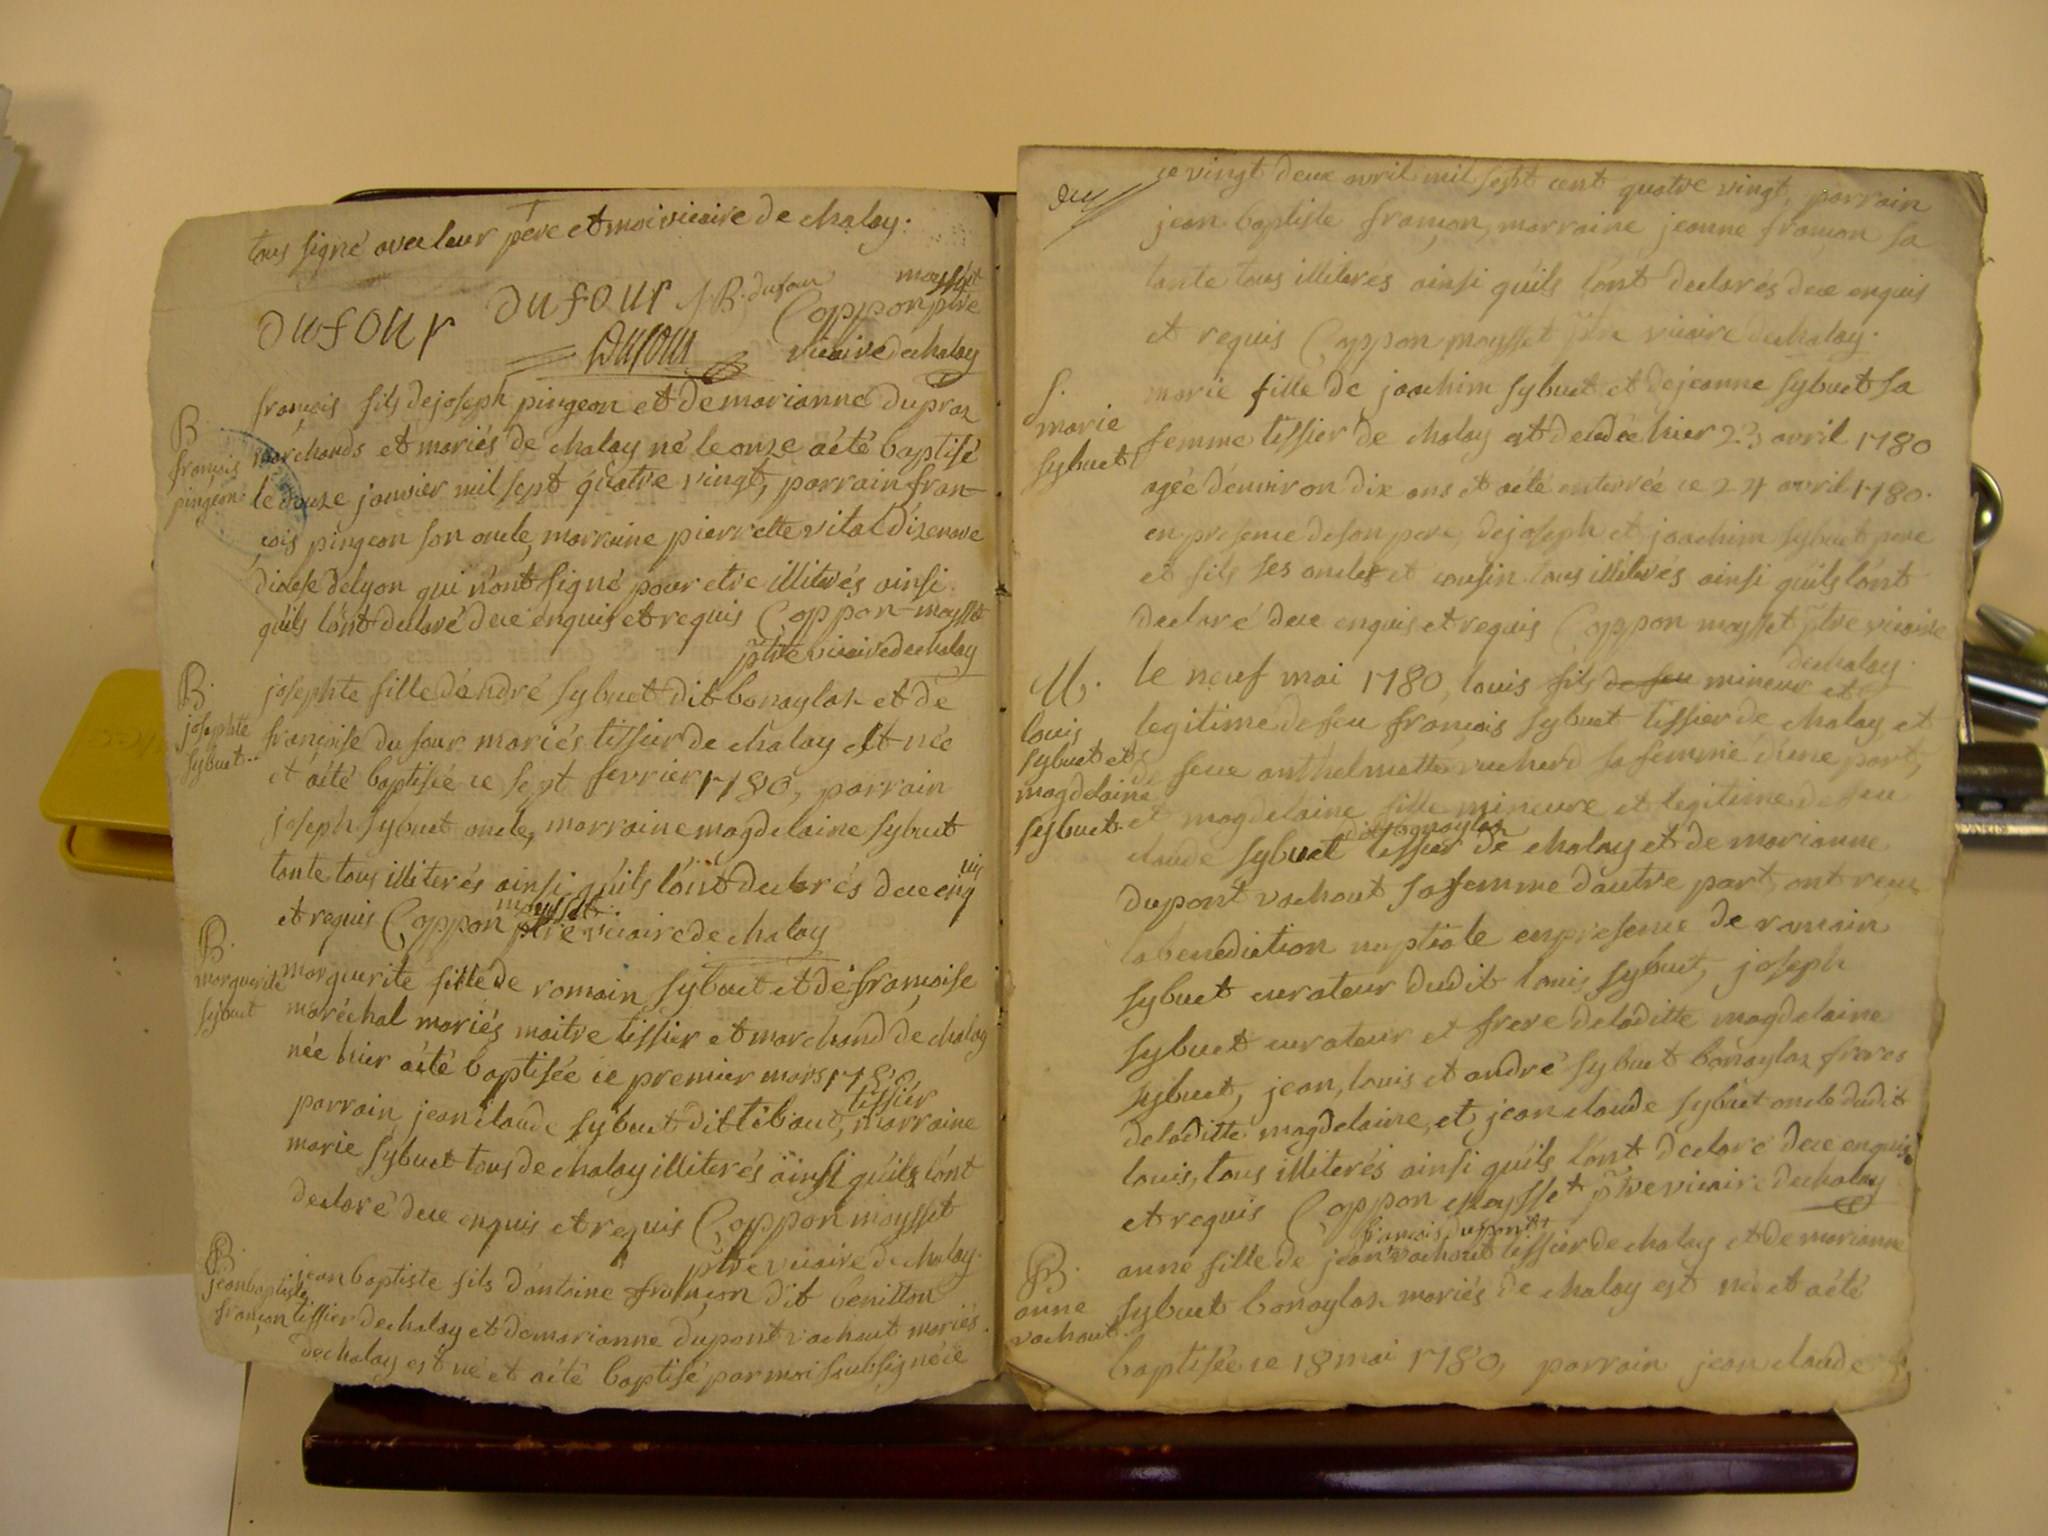 tous signé avec leur père et moi vicaire de chaley.
dufour dufour J B. dufour Coppon maysset ptre
Dufour vicaire de chaley
B.
françois
pingeon
françois fils de joseph pingeon et de marianne dupraz
marchands et mariés de chaley né le onze a été baptisé
le douze janvier mil sept quatre vingt, parrain fran-
çois pingeon son oncle, marraine pierrette vital d'izenave
diocese de lyon qui n'ont signé pour etre illiterés ainsi
qu'ils l'ont declaré de ce enquis et requis Coppon-maysset
ptre vicaire de chaley
B.
josephte
sybuet..
josephte fille d'andré sybuet dit bonaylaz et de
françoise du four mariés tissier de chaley est née
et a été baptisée ce sept fevrier 1780, parrain
joseph sybuet oncle, marraine magdelaine sybuet
tante tous illiterés ainsi qu'ils l'ont declarés de ce enq
uis
et requis Coppon maysset ptre vicaire de chaley
B.
marguerite
sybuet
marguerite fille de romain sybuet et de françoise
maréchal mariés maitre tissier et marchand de chaley
née hier a été baptisée ce premier mars 1780
parrain jean claude sybuet dit tibaut, tissier marraine
marie sybuet tous de chaley illiterés ainsi qu'ils l'ont
declaré de ce enquis et requis Coppon maysset
ptre vicaire de chaley.
B.
jean baptiste
françon
jean baptiste fils d'antoine françon dit benitton
tissier de chaley et de marianne dupont vachout mariés
de chaley est né et a été baptisé par moi soussigné ce
ce vingt deux avril mil sept cent quatre vingt, parrain
jean baptiste françon, marraine jeanne françon sa
tante tous illiterés ainsi qu'ils l'ont declarés de ce enquis
et requis Coppon maysset ptre vicaire de chaley.
S.
marie
sybuet
marie fille de joachim sybuet et de jeanne sybuet sa
femme tissier de chaley est decedée hier 23 avril 1780
agée d'environ dix ans et a été enterrée ce 24 avril 1780.
en presence de son pere, de joseph et joachim sybuet pere
et fils ses oncles et cousin tous illiterés ainsi qu'ils l'ont
declaré de ce enquis et requis Coppon maysset ptre vicaire
de chaley.
M.
louis
sybuet et
magdelaine
sybuet
le neuf mai 1780, louis fils de feu mineur et
legitime de feu françois sybuet tissier de chaley et
de feue femme d'une part,
et magdelaine fille mineure et legitime de feu
claude sybuet dit bonaylaz tissier de chaley et de marianne
dupont vachout sa femme d'autre part, ont reçu
la benediction nuptiale en presence de romain
sybuet curateur dudit louis sybuet, joseph
sybuet curateur et frere de laditte magdelaine
sybuet, jean, louis et andré sybuet bonaylaz freres
de laditte magdelaine, et jean claude sybuet oncle dudit
louis, tous illiterés ainsi qu'ils l'ont declaré de ce enquis
et requis Coppon maysset ptre vicaire de chaley
B.
anne
vachout.
françois dupont
anne fille de jean vachout tissier de chaley et de marianne
sybuet bonaylaz mariés de chaley est née et a été
baptisée ce 18 mai 1780, parrain jean claude